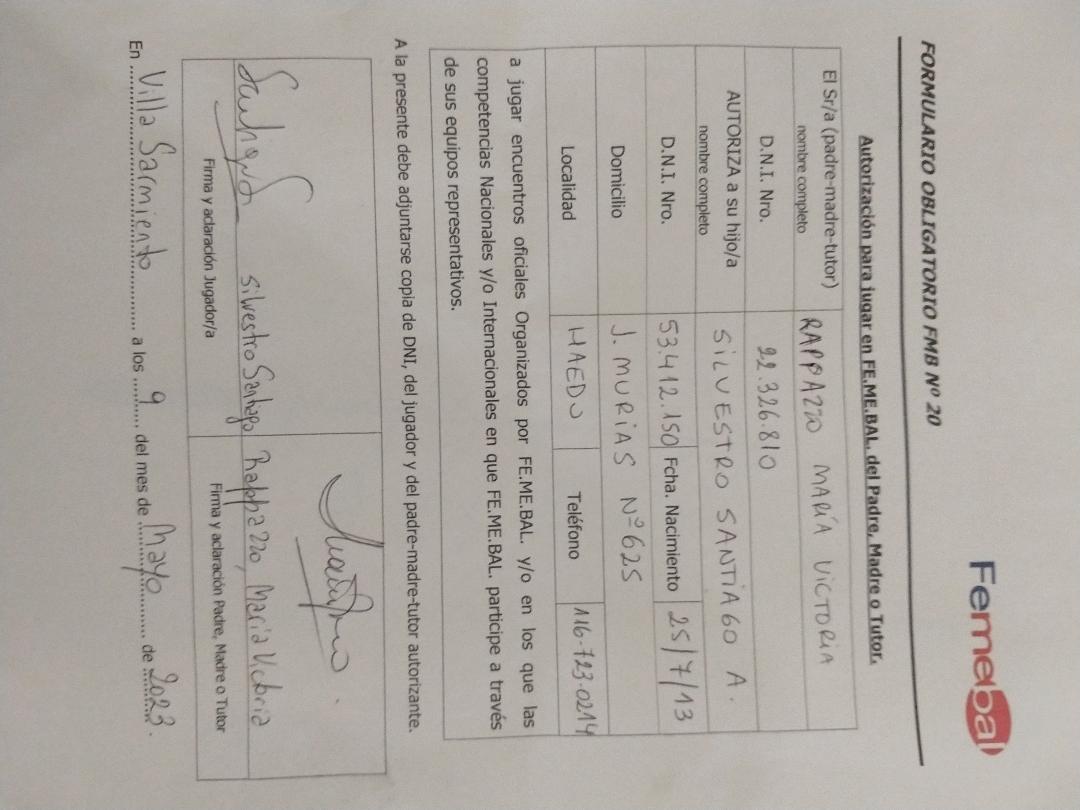 Femebal
FORMULARIO OBLIGATORIO FMB Nº 20
Autorización para jugar en FE.ME.BAL. del Padre, Madre o Tutor.
El Sr/a (padre-madre-tutor) RAPPAZZO MARÍA VICTORIA
nombre completo
D.N.I. Nro. 22.326.810
AUTORIZA a su hijo/a SILVESTRO SANTIAGO A.
nombre completo
D.N.I. Nro. 53.412.150 Fcha. Nacimiento 25/7/13
Domicilio J. MURIAS Nº 625
Localidad HAEDO Teléfono 116-723-0214
a jugar encuentros oficiales Organizados por FE.ME.BAL. y/o en los que las
competencias Nacionales y/o Internacionales en que FE.ME.BAL. participe a través
de sus equipos representativos.
A la presente debe adjuntarse copia de DNI, del jugador y del padre-madre-tutor autorizante.
silvestro Santiago Rappazzo, Maria Victoria
Firma y aclaración Jugador/a Firma y aclaración Padre, Madre o Tutor
En Villa Sarmiento a los 9 del mes de Mayo de 2023.